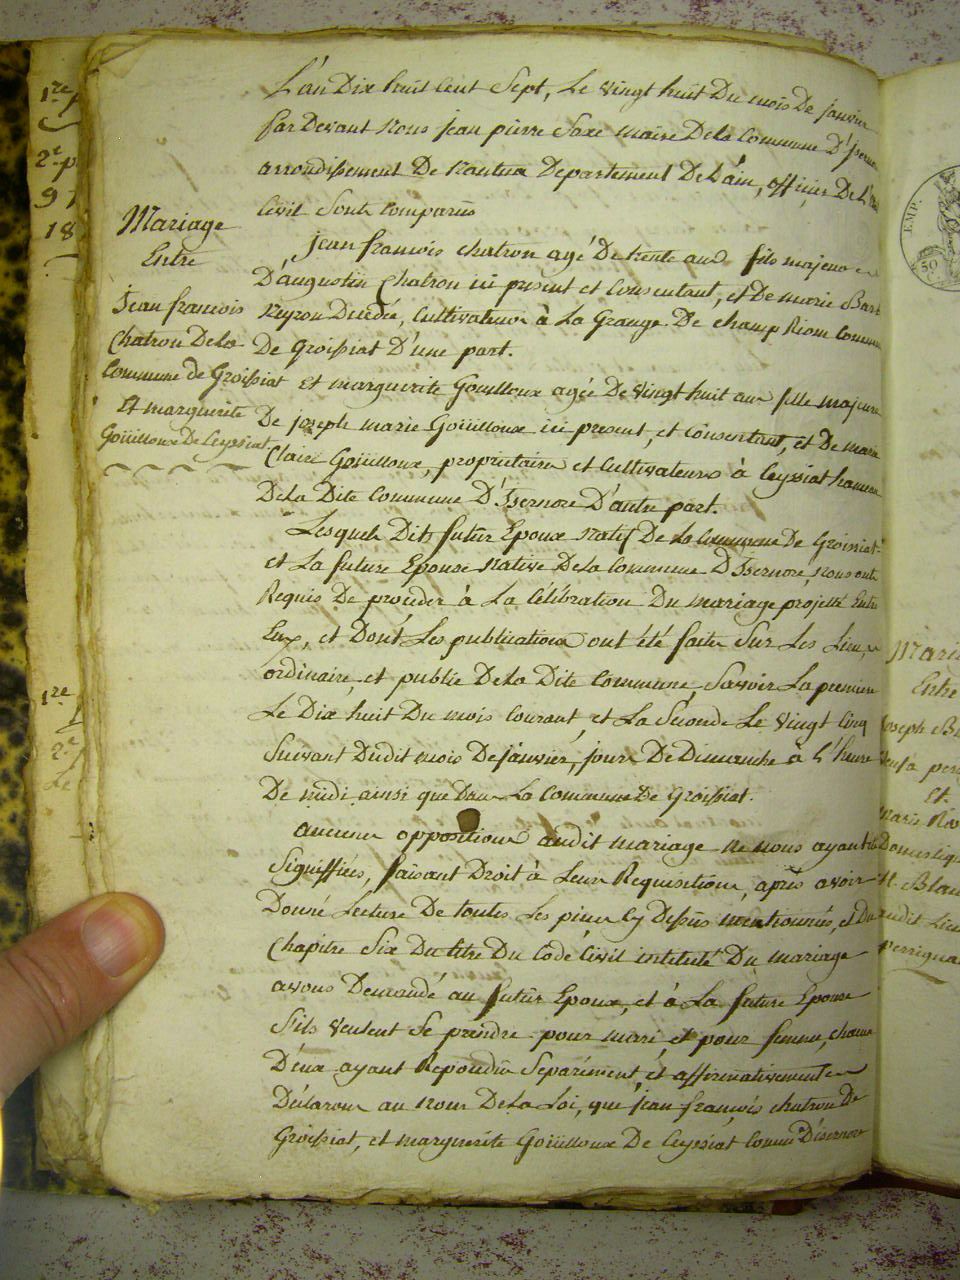 L'an Dix huit Cent Sept, Le vingt huit Du mois De janvier
par Devant Nous jean pierre Saxe maire De la Commune D'
arrondissement De Nantua Departement De L'ain, officier De L'
Civil Sont Comparus
Mariage
Entre
jean francois
Chatron De La
Commune de Groissiat
Et marguerite
Goüilloux De Ceyssiat
jean francois chatron agé De trente ans fils majeur
D'augustin Chatron ici present et Consentant, et De marie
Neyron Decedée, Cultivateur à La Grange De champ Riom
De Groissiat D'une part.
Et marguerite Goüilloux agée De vingt huit ans fille majeure
De joseph marie Goüilloux ici present, et consentant, et De marie
Claire Goüilloux, proprietaire et Cultivateurs à Ceyssiat hameau
De La Dite Commune D'Isernore D'autre part.
Lesquels Dits futur Epoux Natif De La Commune De Groissiat
et La future Epouse Native De La Commune D'Isernore, Nous ont
Requis De proceder à La Célébration Du mariage projetté Entre
Eux, et Dont Les publications ont été faites Sur Les Lieux
ordinaire, et publié De La Dite Commune, Savoir La premiere
Le Dix huit Du mois Courant, et La Seconde Le vingt Cinq
Suivant Dudit mois De janvier, jours De Dimanche à L'heure
De midi ainsi que Dans La Commune De Groissiat.
aucunes oppositions audit mariage ne nous ayant été
Signiffiées, faisant Droit à Leur Requisition, après avoir
Donné Lecture De toutes Les pieces Cy Dessus mentionnées, et Du
Chapitre Six Du titre Du Code Civil intitulé Du mariage
avons Demandé au futur Epoux, et à La future Epouse
S'ils veulent Se prendre pour mari et pour femme, chacun
D'eux ayant Repondu Separément, et affirmativement
Déclarons au nom De La Loi, que jean françois chatron De
Groissiat, et marguerite Goüilloux De Ceyssiat Comm D'isernore
1re
2e
91
18
1re
2e
Le
EMP.
50
C.
Entre
Et